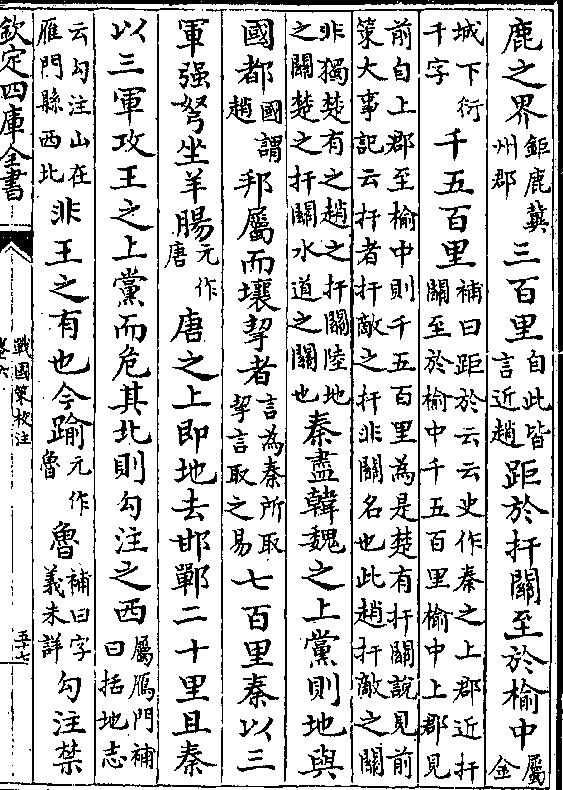 鹿之界鉅鹿冀州郡三百里自此皆言近趙距於扞關至於榆中屬金
城下衍千字千五百里補曰距於云云史作秦之上郡近扞關至於榆中千五百里榆中上郡見
前自上郡至榆中則千五百里為是楚有扞關說見前策大事記云扞者扞敵之扞非關名也此趙扞敵之關
非獨楚有之趙之扞關陸地之關楚之扞關水道之關也秦盡韓魏之上黨則地與
國都國謂趙邦屬而壤挈者言為秦所取挈言取之易七百里秦以三
軍强弩坐羊腸元作唐唐之上即地去邯鄲二十里且秦
以三軍攻王之上黨而危其北則勾注之西屬鴈門補曰括地志
云勾注山在雁門縣西北非王之有也今踰元作魯魯補曰字義未詳勾注禁
欽定四庫全書
戰國策校注
卷六
五十七